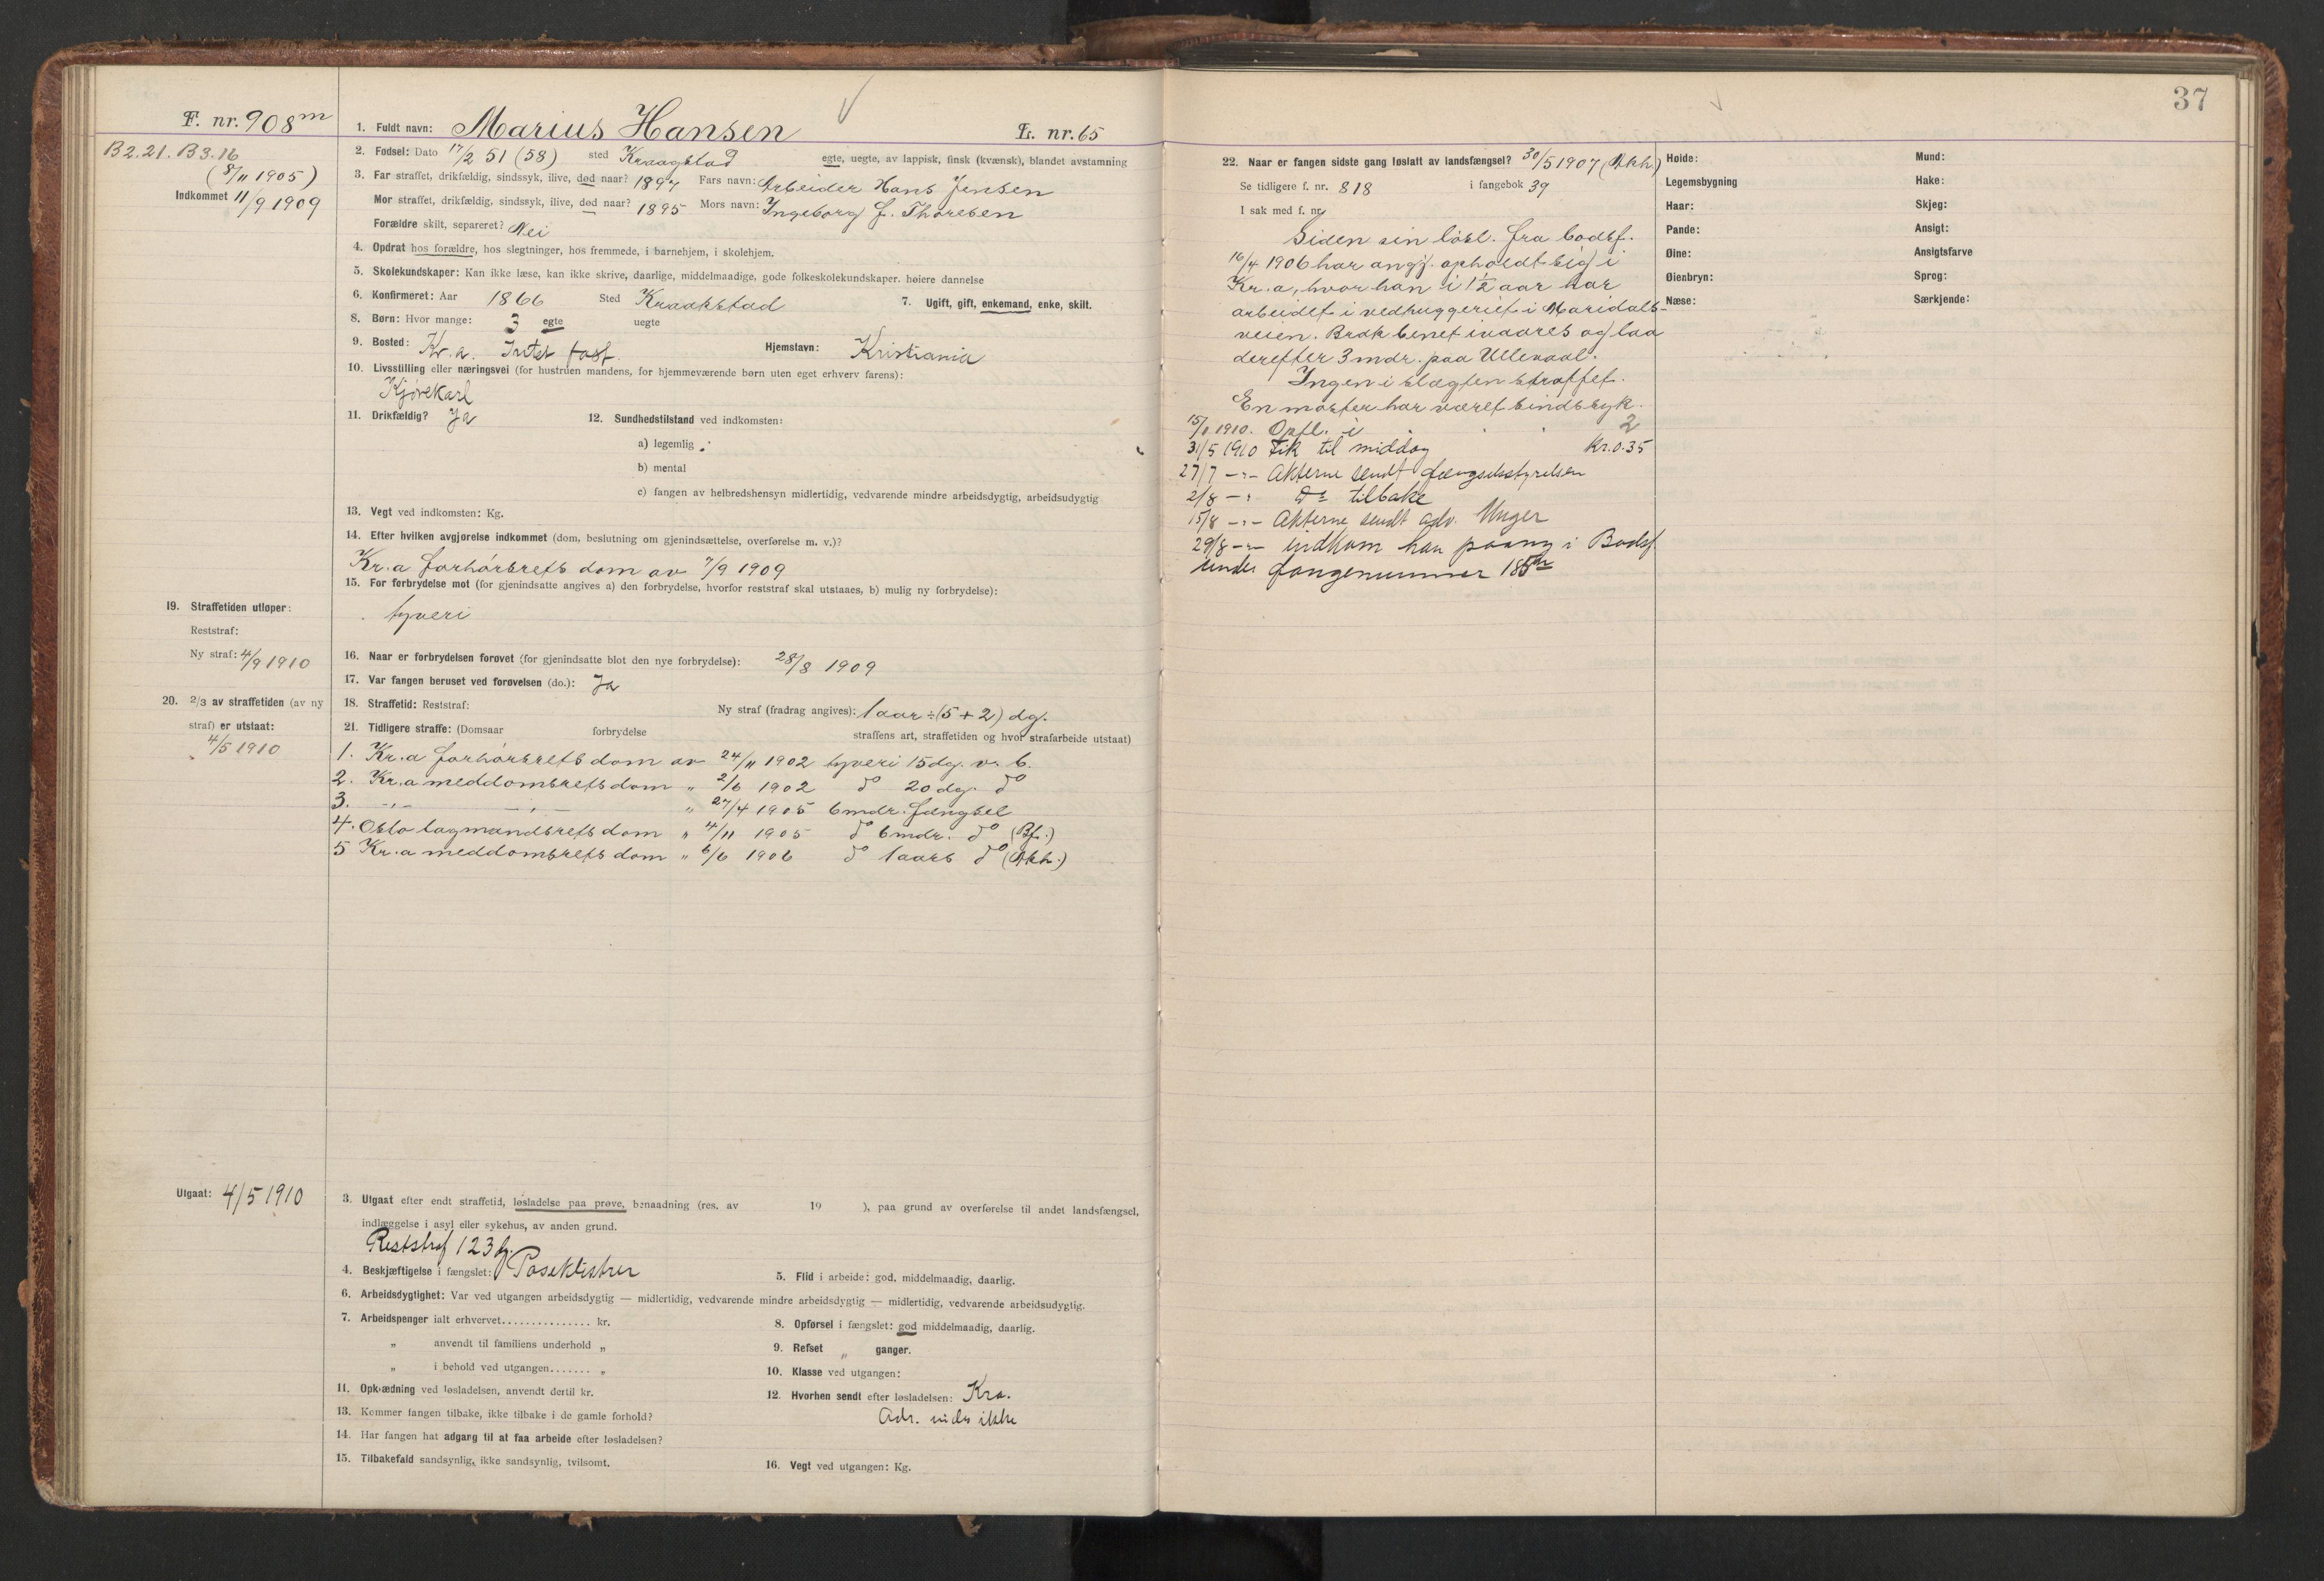 F. nr. 908 m
B2.21. B3.16
(8/11 1905)
Indkommet 11/9 1909
1. Fuldt navn: Marius Hansen L. nr. 65
2. Fødsel: Dato 17/2 51 (58) sted Kraagstad egte, uegte, av lappisk, finsk (kvænsk), blandet avstamning
3. Far straffet, drikfældig, sindssyk, ilive, død naar? 1897 Fars navn: Arbeider Hans Jensen
Mor straffet, drikfældig, sindssyk, ilive, død naar? 1895 Mors navn: Ingeborg f. Thoresen
Forældre skilt, separeret? Nei
4. Opdrat hos forældre, hos slegtninger, hos fremmede, i barnehjem, i skolehjem.
5. Skolekundskaper: Kan ikke læse, kan ikke skrive, daarlige, middelmaadige, gode folkeskolekundskaper. høiere dannelse
6. Konfirmeret: Aar 1866 Sted Kraakstad 7. Ugift, gift, enkemand, enke, skilt.
8. Børn: Hvor mange: 3 egte uegte
9. Bosted: Kr.a. Intet fast. Hjemstavn: Kristiania
10. Livsstilling eller næringsvei (for hustruen mandens, for hjemmeværende børn uten eget erhverv farens):
Kjørekarl
11. Drikfældig? Ja 12. Sundhedstilstand ved indkomsten:
a) legemlig :
b) mental
c) fangen av helbredshensyn midlertidig, vedvarende mindre arbeidsdygtig, arbeidsudygtig
13. Vegt ved indkomsten: Kg.
14. Efter hvilken avgjørelse indkommet (dom, beslutning om gjenindsættelse, overførelse m. v.)?
Kr.a forhørsrets dom av 7/9 1909
15. For forbrydelse mot (for gjenindsatte angives a) den forbrydelse, hvorfor reststraf skal utstaaes, b) mulig ny forbrydelse):
tyveri
19. Straffetiden utløper:
Reststraf:
Ny straf: 4/9 1910
16. Naar er forbrydelsen forøvet (for gjenindsatte blot den nye forbrydelse): 28/8 1909
17. Var fangen beruset ved forøvelsen (do.): Ja
20. 2/3 av straffetiden (av ny
straf) er utstaat:
4/5 1910
18. Straffetid: Reststraf: Ny straf (fradrag angives): 1 aar ÷ (5 + 2) dg.
21. Tidligere straffe: (Domsaar forbrydelse straffens art, straffetiden og hvor strafarbeide utstaat)
1. Kr.a forhørsrets dom av 24/11 1902 tyveri 15 dg. v. b.
2. Kr.a meddomsrets dom " 2/6 1902 do 20 dg. do
3. -"- -"- " 27/4 1905 6 mdr. fængsel
4. Oslo lagmandsrets dom " 4/11 1905 do 6 mdr. do (Bf.)
5 Kr.a meddomsrets dom " 6/6 1906 do 1 aars do (Akh.)
Utgaat: 4/5 1910
3. Utgaat efter endt straffetid, løsladelse paa prøve, benaadning (res. av 19 ), paa grund av overførelse til andet landsfængsel,
indlæggelse i asyl eller sykehus, av anden grund.
Reststraf 123 dg.
4. Beskjæftigelse i fængslet: Poseklistrer 5. Flid i arbeide: god, middelmaadig, daarlig.
6. Arbeidsdygtighet: Var ved utgangen arbeidsdygtig — midlertidig, vedvarende mindre arbeidsdygtig — midlertidig, vedvarende arbeidsudygtig.
7. Arbeidspenger ialt erhvervet............... kr. 8. Opførsel i fængslet: god middelmaadig, daarlig.
" anvendt til familiens underhold " 9. Refset " ganger.
" i behold ved utgangen....... " 10. Klasse ved utgangen:
11. Opklædning ved løsladelsen, anvendt dertil kr. 12. Hvorhen sendt efter løsladelsen: Kra.
13. Kommer fangen tilbake, ikke tilbake i de gamle forhold? Adr. vides ikke
14. Har fangen hat adgang til at faa arbeide efter løsladelsen?
15. Tilbakefald sandsynlig, ikke sandsynlig, tvilsomt. 16. Vegt ved utgangen: Kg.
37
22. Naar er fangen sidste gang løslatt av landsfængsel? 30/5 1907 (Akh.)
Se tidligere f. nr. 818 i fangebok 39
I sak med f. nr.
Siden sin løsl. fra bodsf.
16/4 1906 har angj. opholdt sig i
Kr.a, hvor han i 1 1/2 aar har
arbeidet i vedhuggeriet i Maridals-
veien. Brak benet ivaares og laa
derefter 3 mdr. paa Ullevaal.
Ingen i slægten straffet.
En morfar har været sindssyk.
15/1 1910. Opfl. i 2
31/5 1910 fik til middag kr. 0.35
27/7 -"- Akterne sendt fængselsstyrelsen
2/8 -"- do tilbake
15/8 -"- Akterne sendt adv. Unger
29/8 -"- indkom han paany i Bodsf.
under fangenummer 185 m
Høide: Mund:
Legemsbygning Hake:
Haar: Skjeg:
Pande: Ansigt:
Øine: Ansigtsfarve
Øienbryn: Sprog:
Næse: Særkjende: